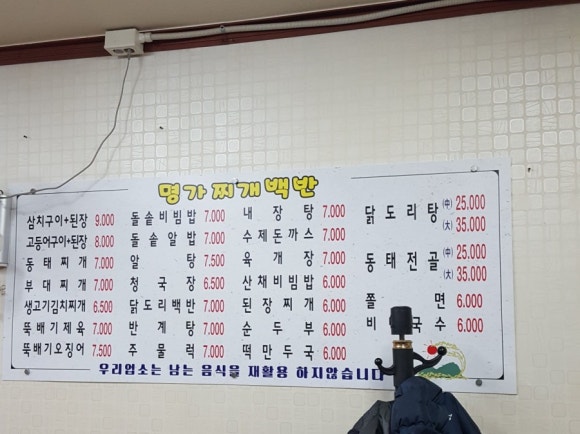 명가찌개백반
삼치구이+된장 9.000
고등어구이+된장 8.000
동태찌개 7.000
부대찌개 7.000
생고기김치찌개 6.500
뚝배기제육 7.000
뚝배기오징어 7.500
돌솥비빔밥 7.000
돌솥알밥 7.000
알탕 7.500
청국장 6.500
닭도리백반 7.000
반계탕 7.000
주물럭 7.000
내장탕 7.000
수제돈까스 7.000
육개장 7.000
산채비빔밥 6.000
된장찌개 6.000
순두부 6.000
떡만두국 6.000
닭도리탕 (中) 25.000
(大) 35.000
동태전골 (中) 25.000
(大) 35.000
쫄면 6.000
비 국수 6.000
우리업소는 남는 음식을 재활용 하지않습니다